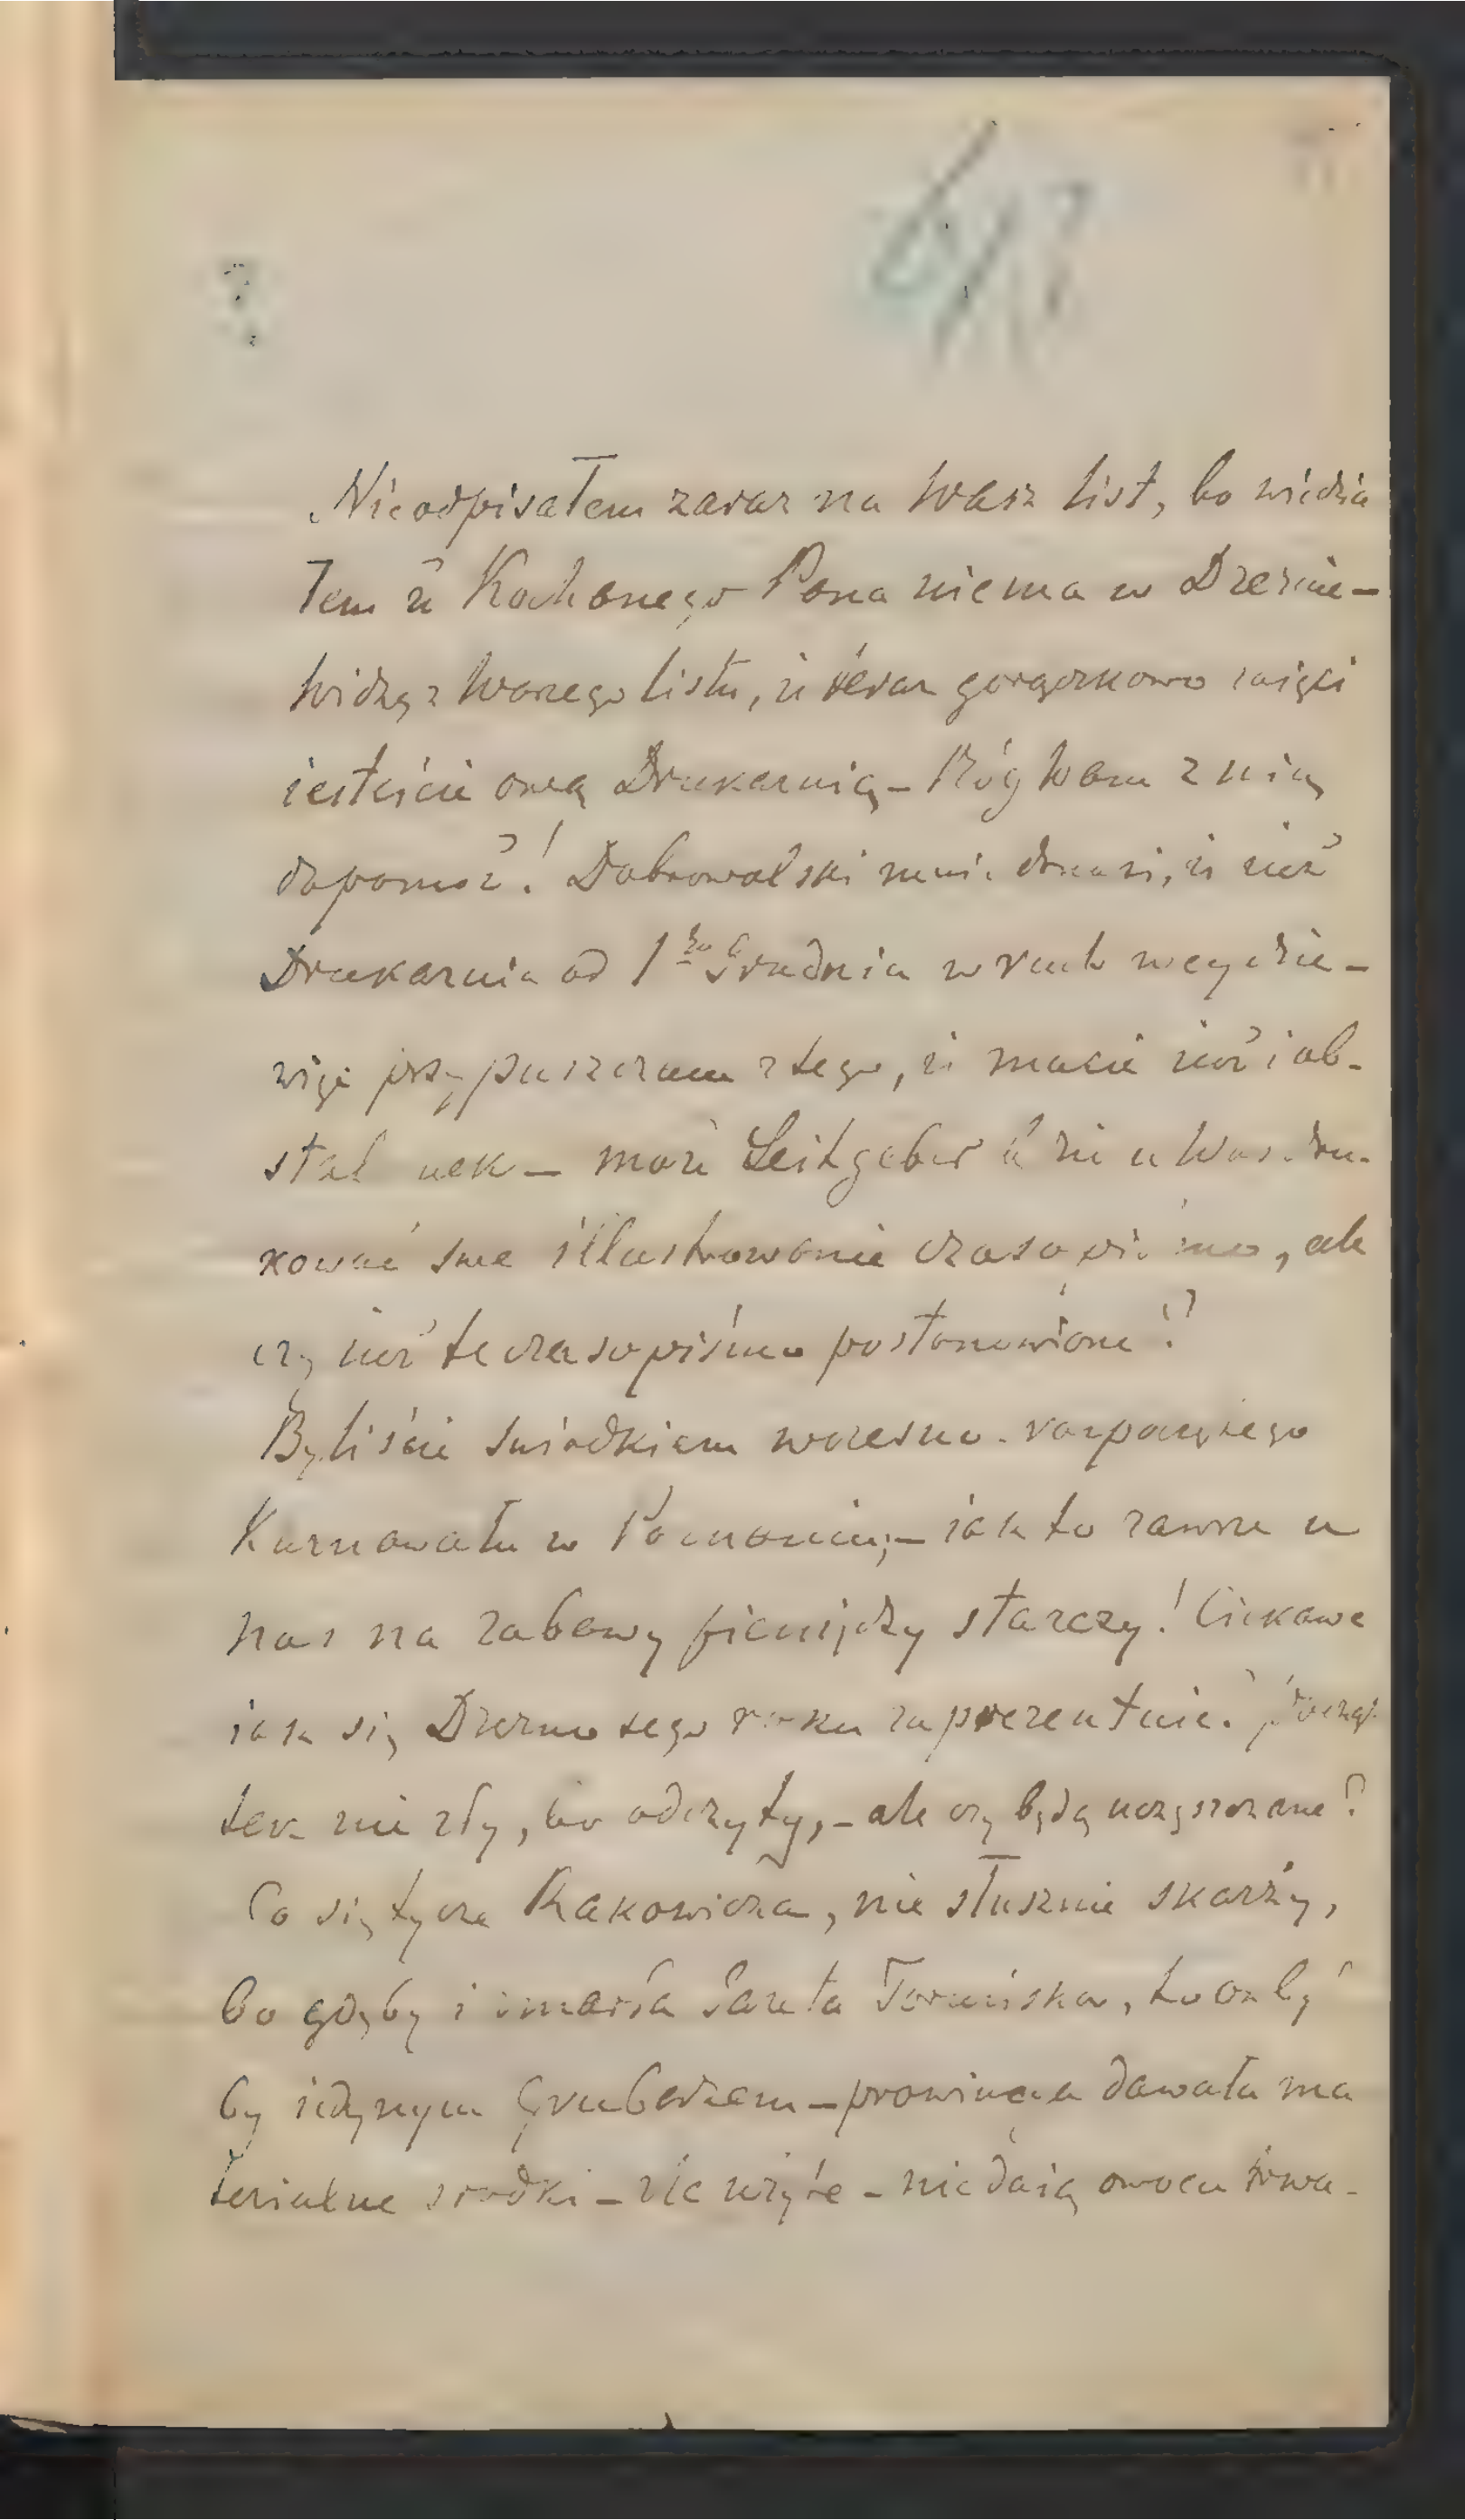 Nieodpisałem zaraz na Wasz list, bo wiedzia
łem iż Kochanego Pana niema w Dreznie –
Widzę z Waszego listu, iż teraz gorączkowo zajęci
iesteście ową Drukarnią – Bóg Wam z nią
dopomóż! Dobrowolski mnie donosi, iż iuż
Drukarnia od 1go Grudnia w ruch weydzie –
więc przypuszczam z tego, iż macie iuż i ob-
stalunek – może Leitgeber u Was dru-
kować swe illustrowanie czasopismo, ale
czy iuż te czasopismo postanowione?
Byliście świadkiem wcześno rozpoczętego
Karnawału w Poznaniu, – iak to zawsze u
nas na zabawy pieniędzy starczy! Ciekawe
iak się Drezno tego roku zaprezentuie? począ-
tek nie zły, bo odczyty, – ale czy będą uczęszczane?
Co się tycze Rakowicza, nie słusznie skarży,
bo gdyby i umarła Gazeta Toruńska, to on by
by iedynym Grubarzem – prowincya dawała ma
terialne srodki – źle użyte – nie daią owocu